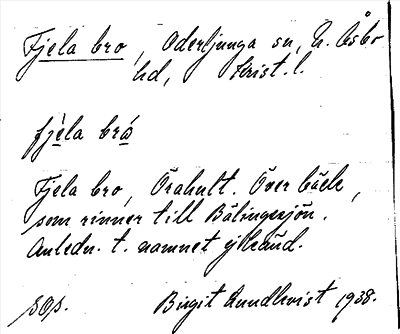 Fjela bro, Oderljunga sn, N. Åsbo
hd, Krist. l.
fjèla brό
Fjela bro, Örahult. Över bäck,
som rinner till Bälingesjön.
Anledn. t. namnet okänd.
sOs. Birgit Lundkvist 1938.